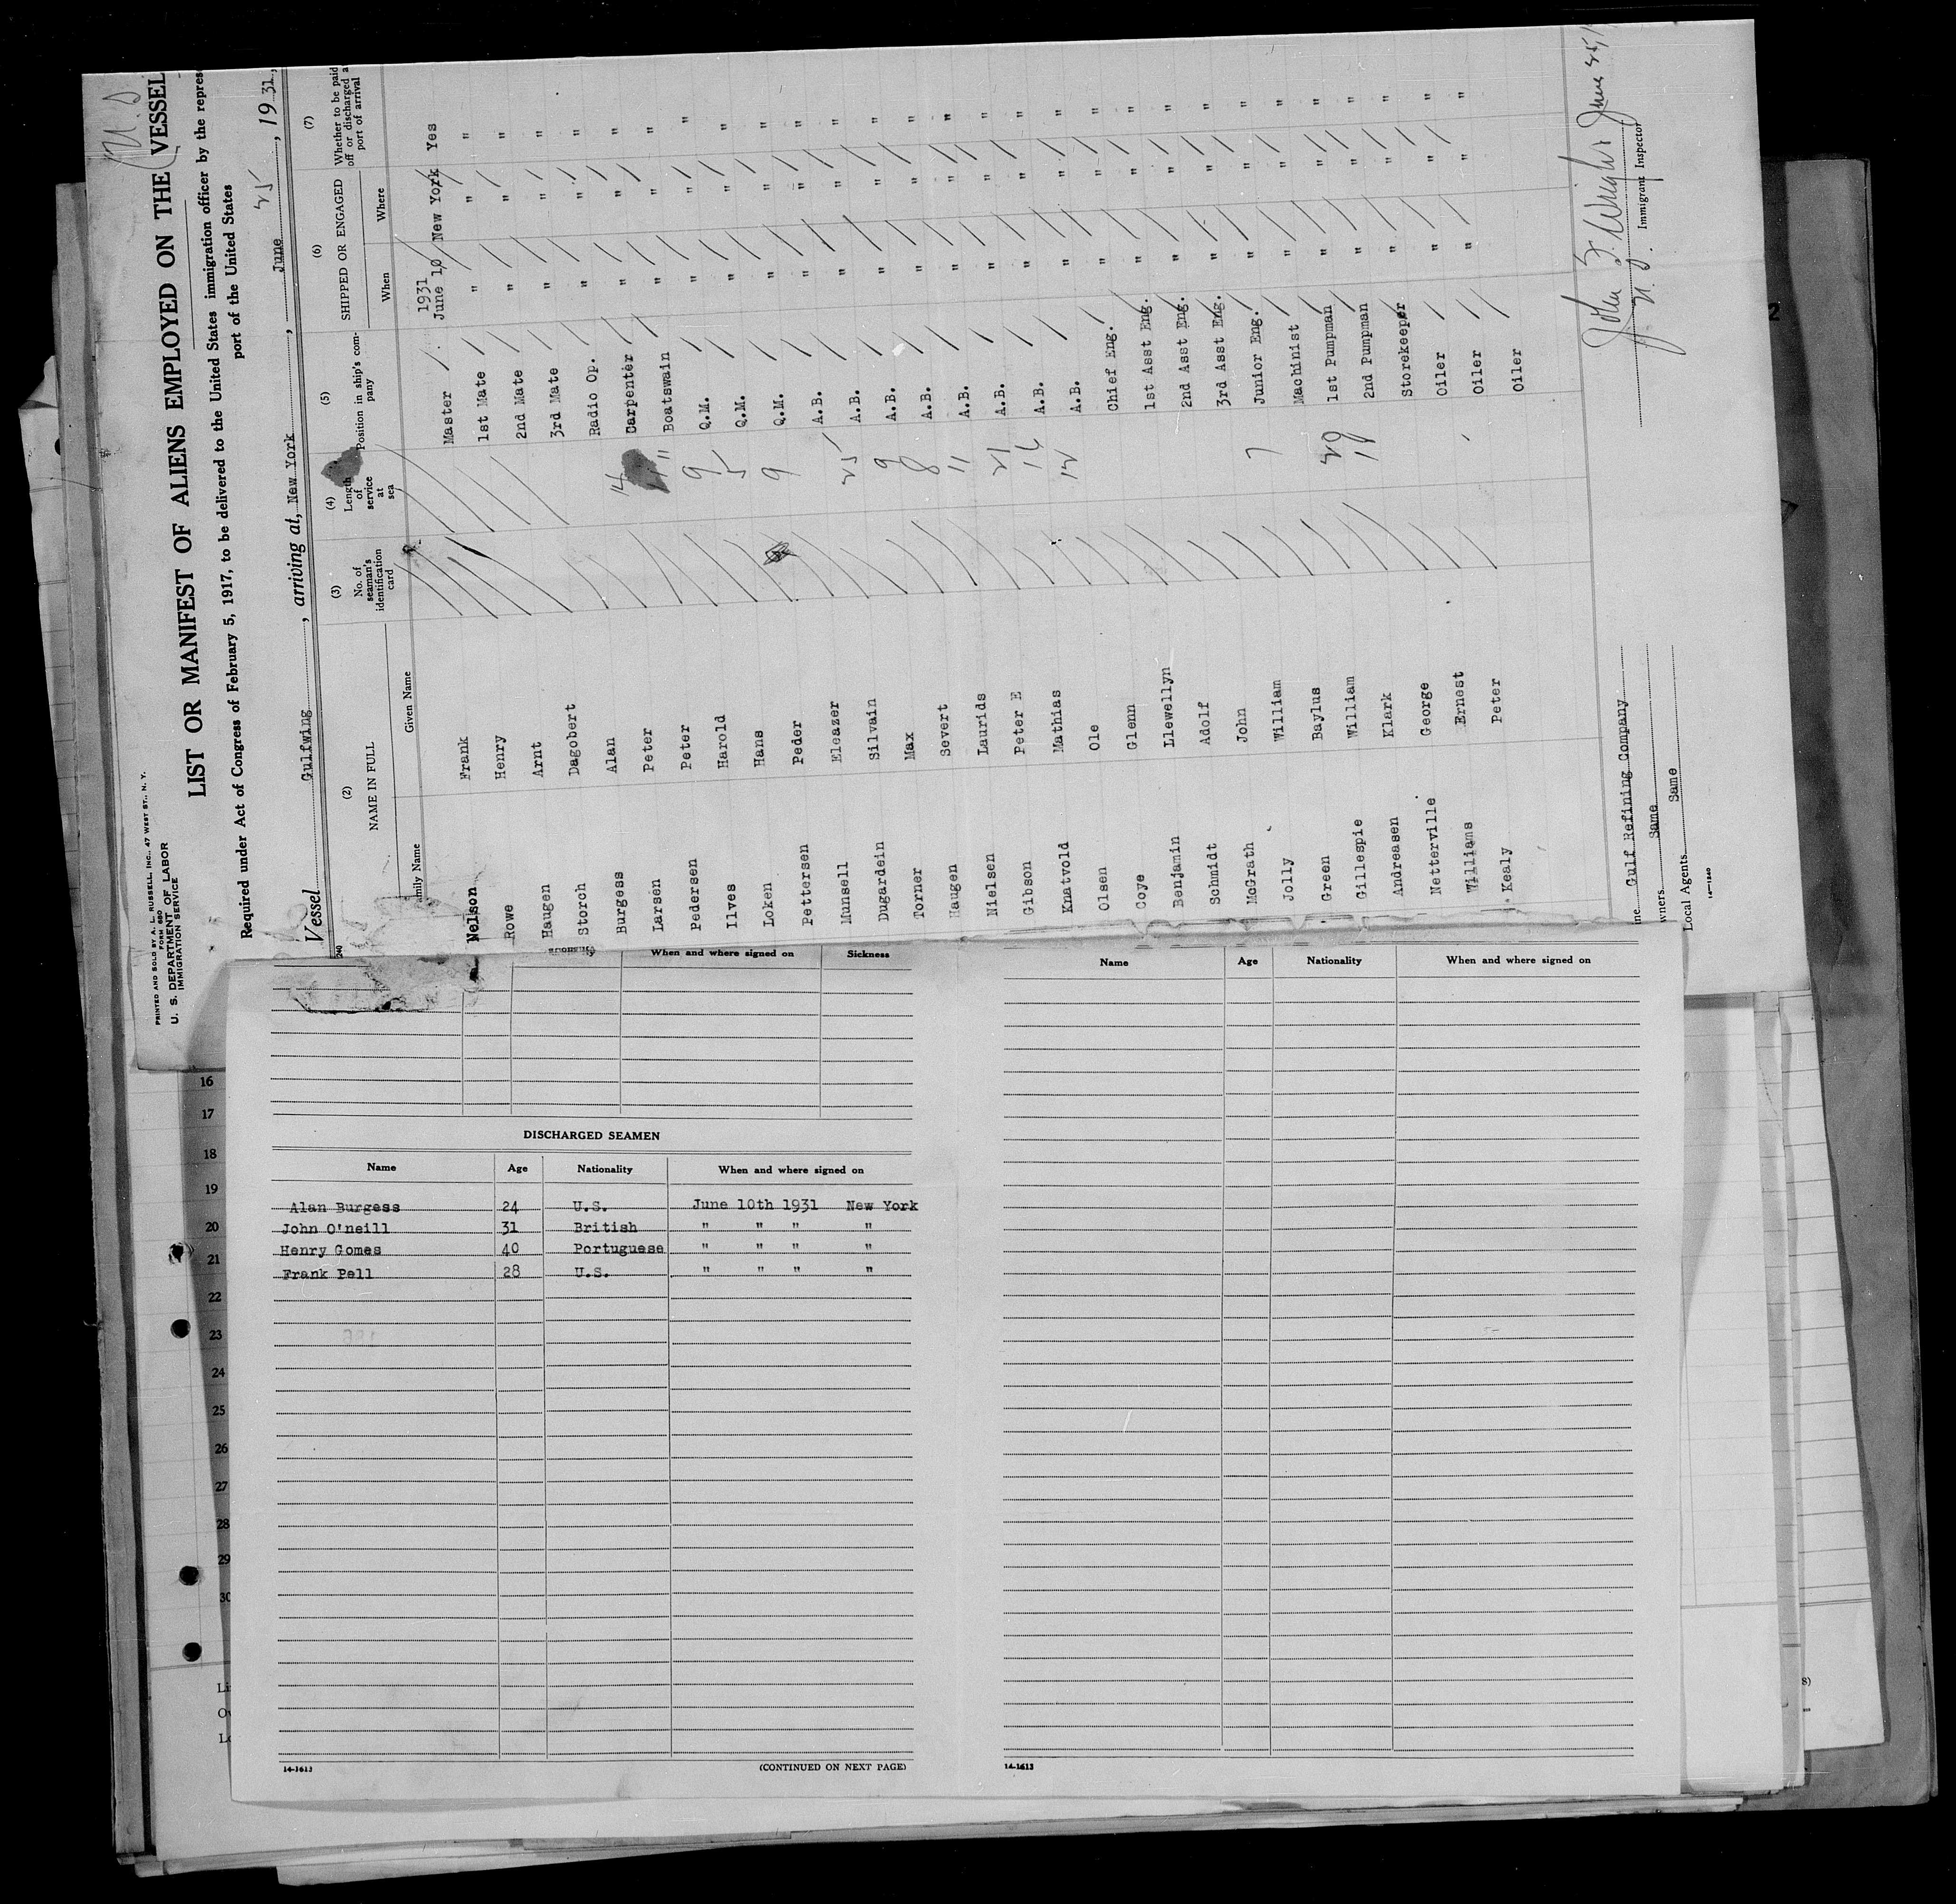 PRINTED AND SOLD BY A. L. RUSSELL, INC., 47 WEST ST., N. Y.
FORM 680
U. S. DEPARTMENT OF LABOR
IMMIGRATION SERVICE
LIST OR MANIFEST OF ALIENS EMPLOYED ON THE VESSEL
Required under Act of Congress of February 5, 1917, to be delivered to the United States immigration officer by the repres
port of the United States
Vessel Gulfwing, arriving at, New York, June 25, 1931,
(2) (3) (4) (5) (6) (7)
NAME IN FULL No. of seaman's identification card Length of service at sea Position in ship's company SHIPPED OR ENGAGED Whether to be paid off or discharged a port of arrival
amily Name Given Name When Where
Nelson Frank Master 1931 June 10 New York Yes
Rowe Henry 1st Mate " " "
Haugen Arnt 2nd Mate " " "
Storch Dagobert 3rd Mate " " "
Burgess Alan Radio Op. " " "
Larsen Peter 14 Carpenter " " "
Pedersen Peter Boatswain " " "
Ilves Harold 9 Q.M. " " "
Loken Hans 5 Q.M. " " "
Pettersen Peder 9 Q.M. " " "
Munsell Eleazer A.B. " " "
Dugardein Silvain 25 A.B. " " "
Torner Max 9 A.B. " " "
Haugen Severt 8 A.B. " " "
Nielsen Laurids 11 A.B. " " "
Gibson Peter E 21 A.B. " " "
Knatvold Mathias 16 A.B. " " "
Olsen Ole 12 A.B. " " "
Coye Glenn Chief Eng. " " "
Benjamin Llewellyn 1st Asst Eng. " " "
Schmidt Adolf 2nd Asst Eng. " " "
McGrath John 3rd Asst Eng. " " "
Jolly William 7 Junior Eng. " " "
Green Baylus Machinist " " "
Gillespie William 20 1st Pumpman " " "
Andreasen Klark 18 2nd Pumpman " " "
Netterville George Storekeeper " " "
Williams Ernest Oiler " " "
Kealy Peter Oiler " " "
Oiler
ne Gulf Refining Company
wners Same
Local Agents Same
14-1240
John F. Wright June 25/
Immigrant Inspector
When and where signed on Sickness
DISCHARGED SEAMEN
Name Age Nationality When and where signed on
Alan Burgess 24 U.S. June 10th 1931 New York
John O'neill 31 British " " " "
Henry Gomes 40 Portuguese " " " "
Frank Pell 28 U.S. " " " "
14-1613
(CONTINUED ON NEXT PAGE)
Name Age Nationality When and where signed on
14-1613
16
17
18
19
20
21
22
23
24
25
26
27
28
29
30
Li
Ow
Lo
2